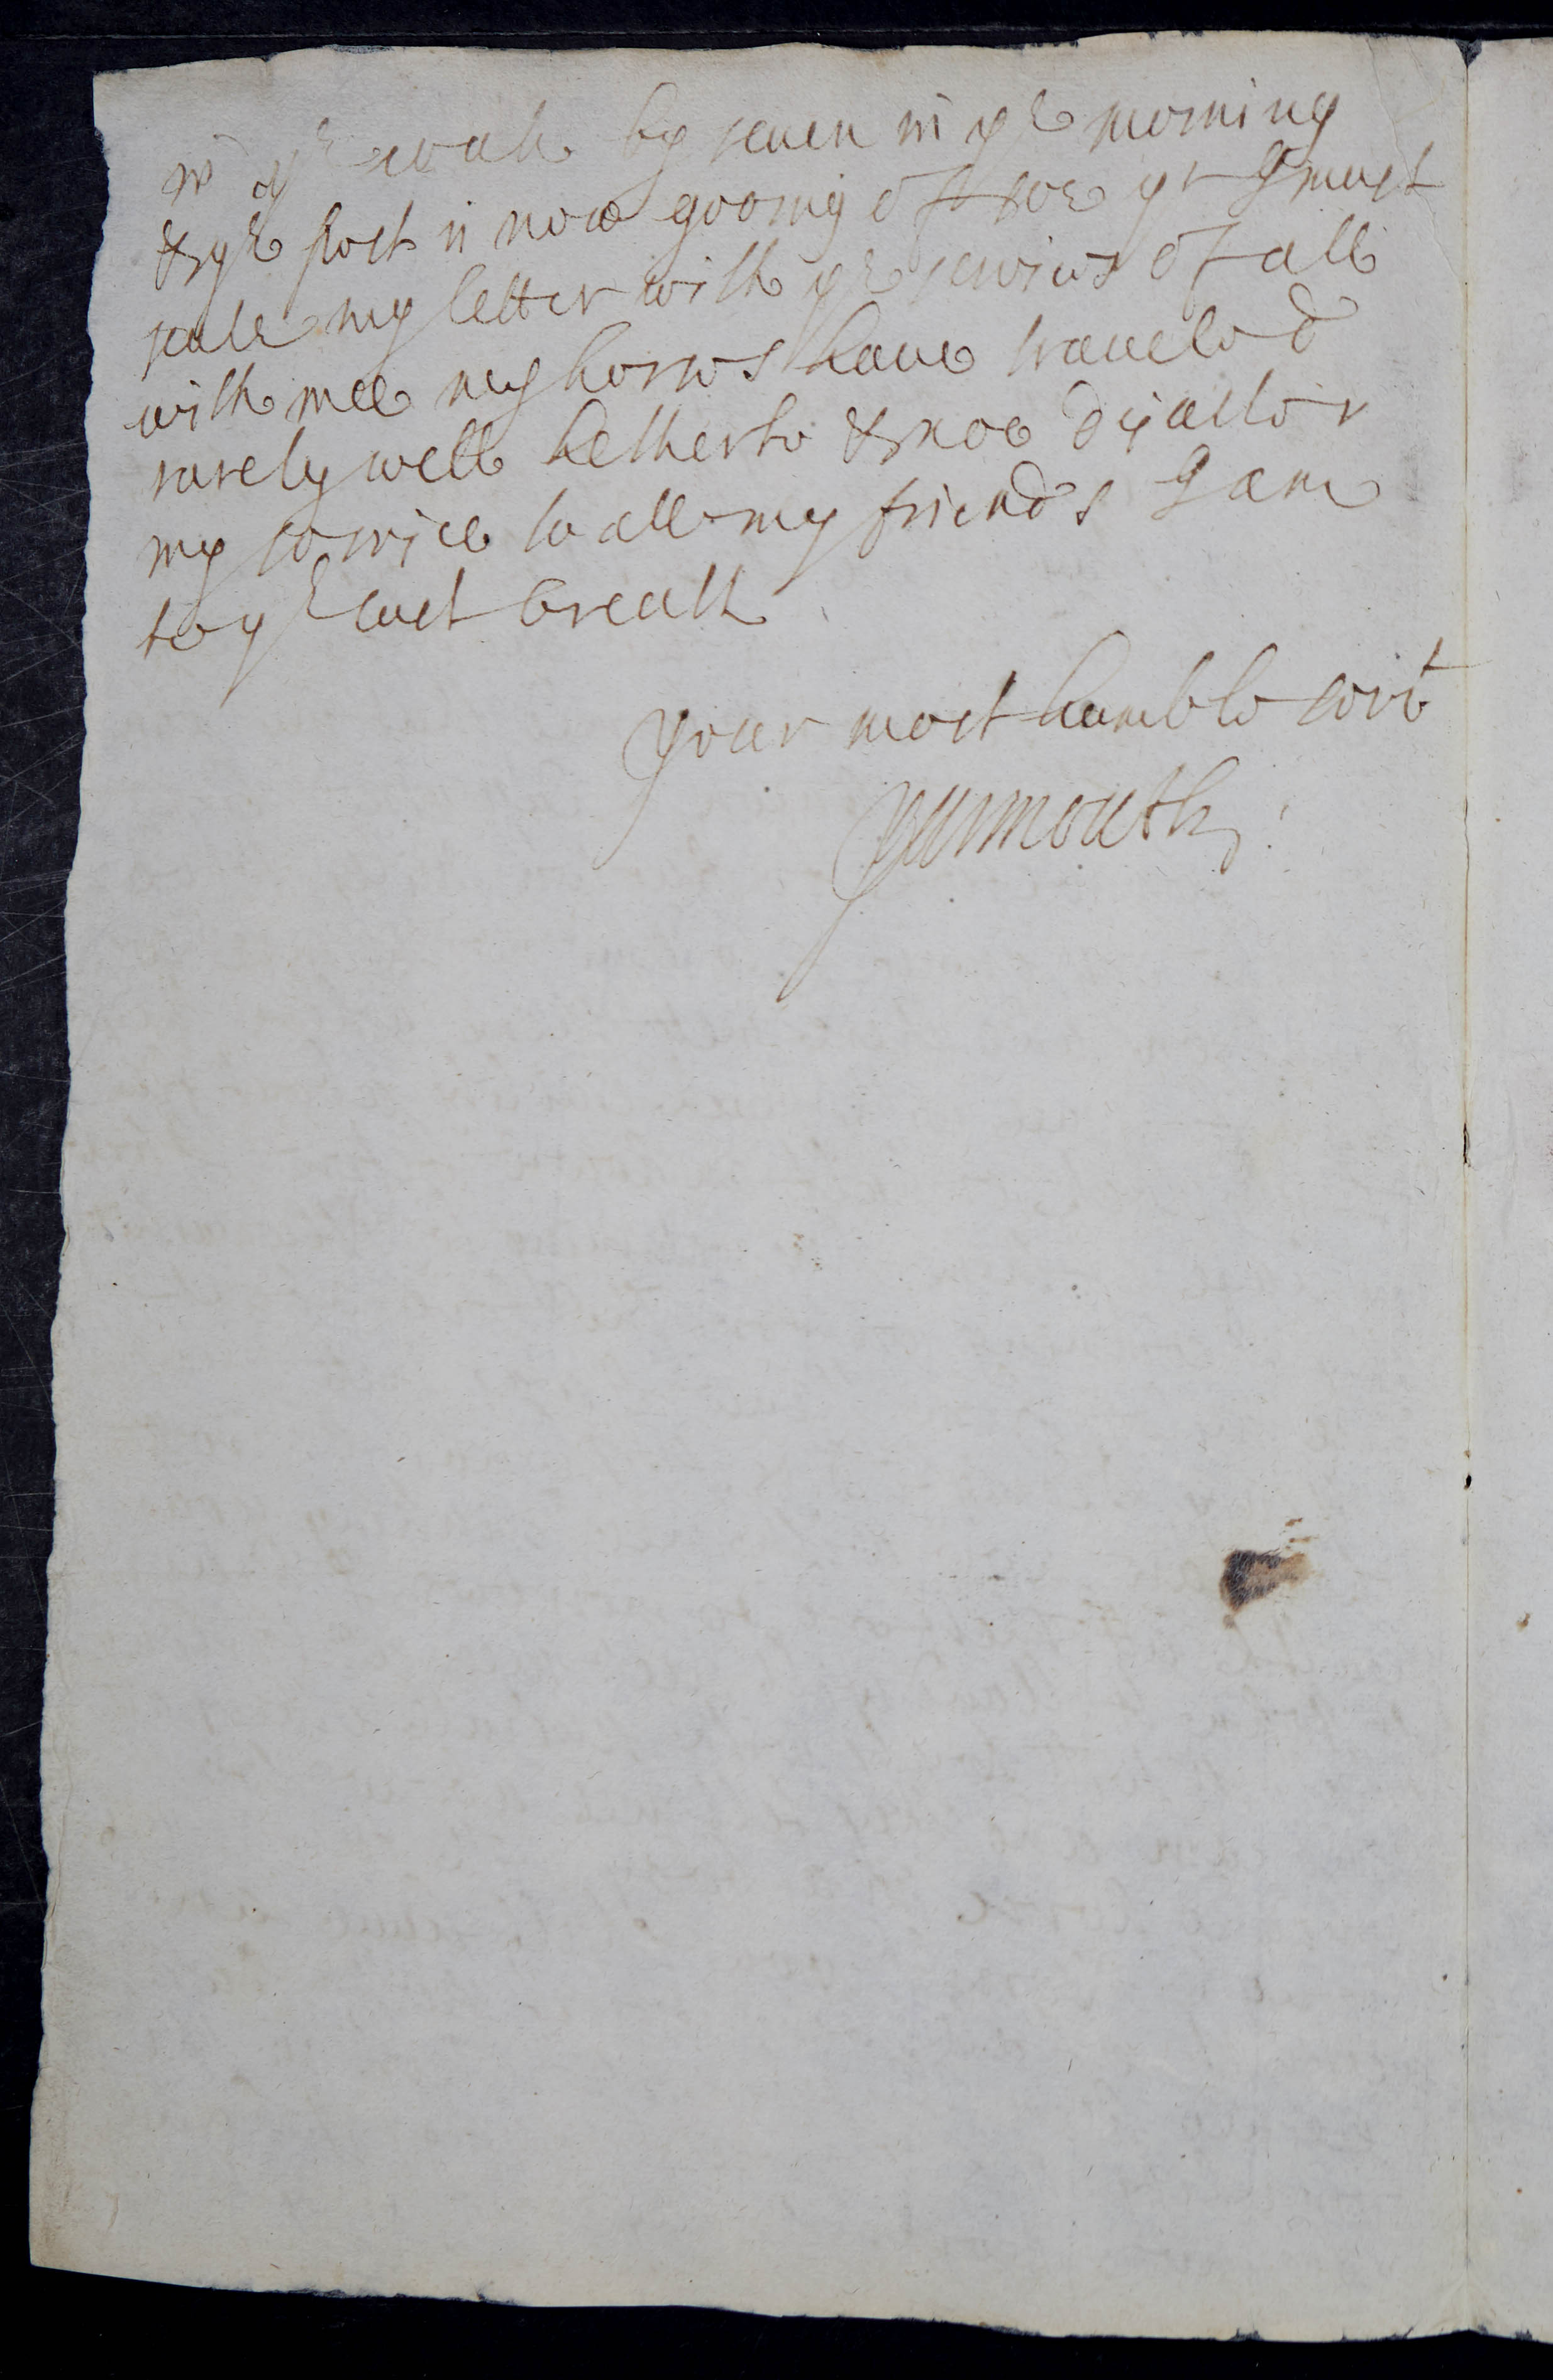 in ye coach by seuen in ye morning
& ye post is now gooing of soe yt I must
seale my letter with ye seruices of all
with mee my horses haue traueled
rarely well hetherto & noe disaster
my seruice to all my friends I am
to ye last breath
your most humble servt
Yarmouth